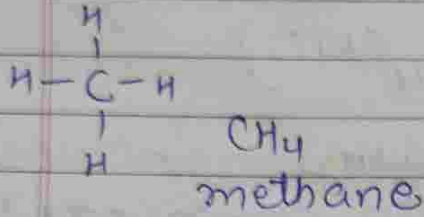 H
H-C-H
H
CH4
methane